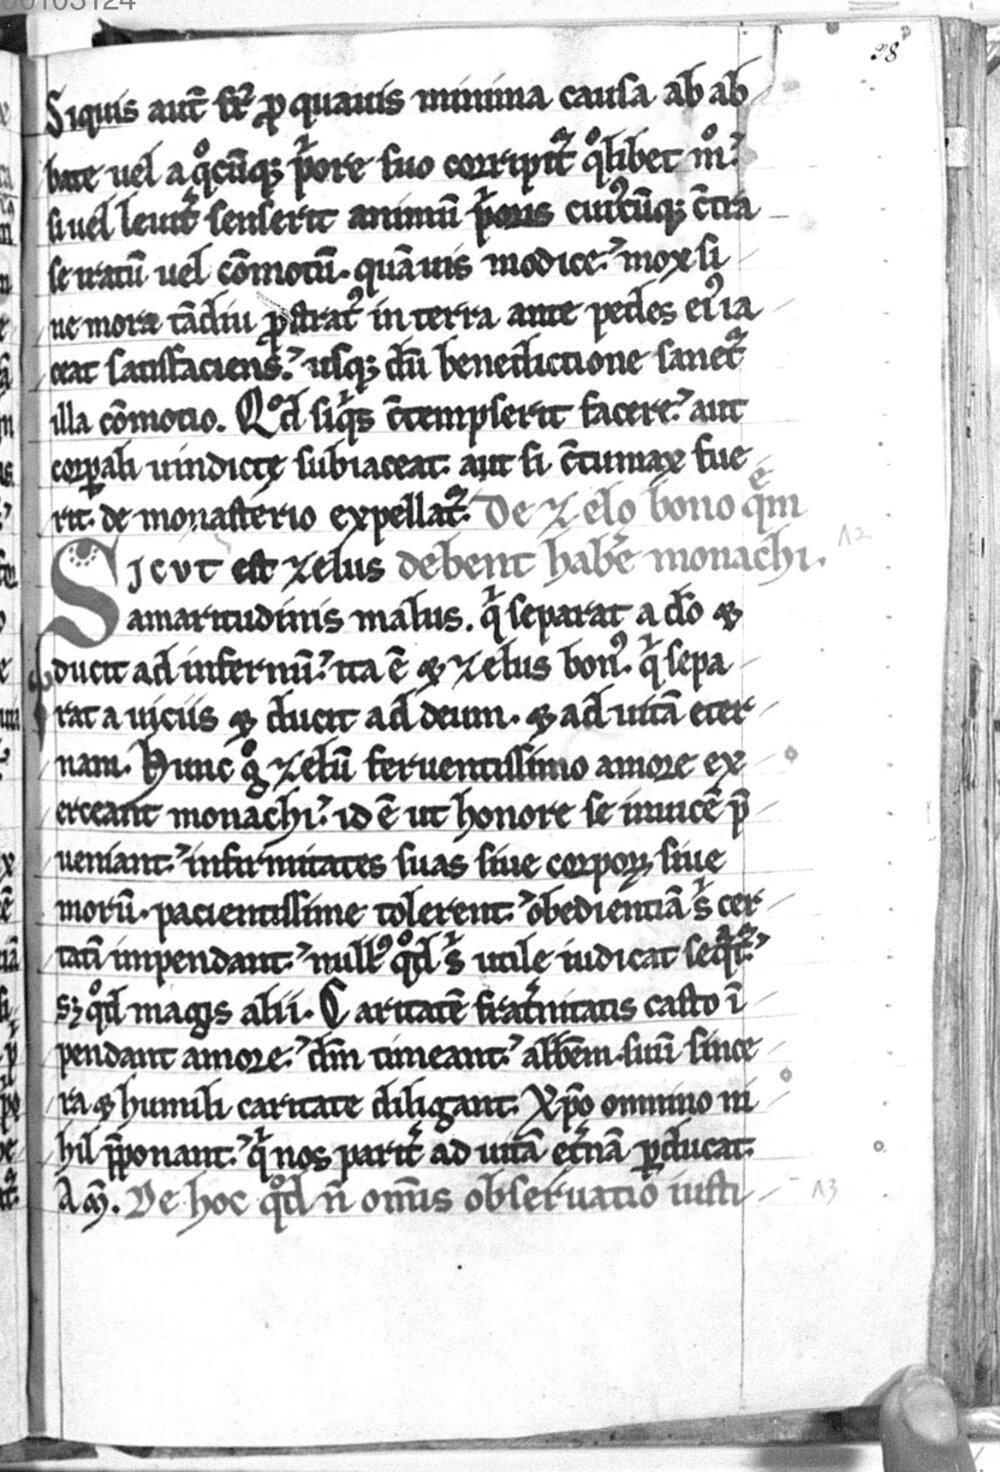 00103124
28
Siquis aut̄ fr̄ ꝓ quauis minima causa ab ab
bate uel a qͦcūqꝫ pͥore suo corripit᷑ qͦlibet mͦ.
si uel leuit᷑ senserit animū pͥoris cuiꝰcūqꝫ c̄tra
se iratū uel cōmotū. quāuis modice. mox si
ne mora tādiu ꝓstratꝰ in terra ante pedes eiꝰ ia
ceat satisfaciens. usqꝫ dū benedictione sanet᷑
illa cōmotio. Qͦd siqͥs c̄tempserit facere. aut
corꝑali uindictę subiaceat. aut si c̄tumax fue
rit. de monasterio expellat᷑. De zelo bono quē
Sicut est zelus debent habe᷑ monachi. 12
amaritudinis malus. qͥ separat a do ⁊
ducit ad infernū. ita ē ⁊ zelus bonꝰ. qͥ sepa
rat a uiciis ⁊ ducit ad deum. ⁊ ad uitā eter
nam. Hunc gͦ zelū feruentissimo amore ex
erceant monachi. id ē ut honore se inuicē p̄
ueniant. infirmitates suas siue corpoꝝ siue
morū. pacientissime tolerent. obedientiā sͥ cer
tati impendant. nullꝰ qͦd sͥ utile iudicat seqͣt᷑.
sꝫ qͦd magis alii. Caritatē frat᷑nitatis casto ī
pendant amore. dm̄ timeant. abbēm suū since
ra ⁊ humili caritate diligant. Xp̄o omnino ni
hil p̄ponant. qͥ nos parit᷑ ad uitā et᷑nā ꝑducat.
Am̄. De hoc qͦd n̄ om̄is obseruatio iusti 13